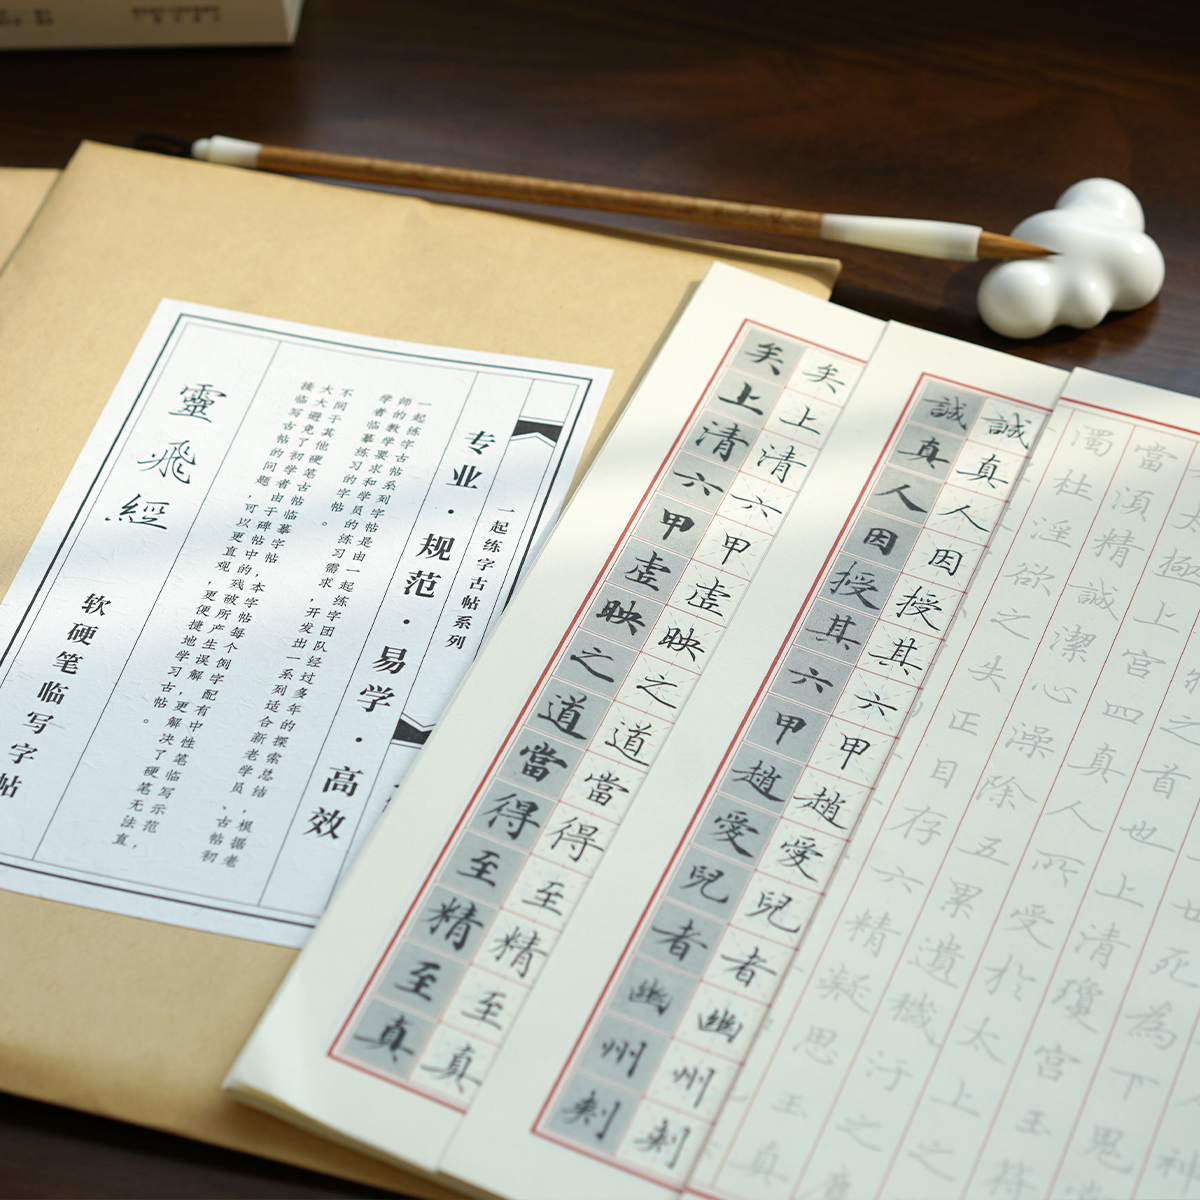 一起练字古帖系列
专业·规范·易学·高效
一起练字古帖系列字帖是由一起练字团队经过多年的探索总结,根据老
师的教学要求和学员的练习需求,开发出一系列适合新老学员、古帖初
学者临摹练习的字帖。
不同于其他硬笔古帖临摹字帖,本字帖每个例字配有中性笔临写示范,
大大避免了初学者由于碑帖中的残破所产生误解,更解决了硬笔无法直
接临写古帖的问题,可以更直观,更便捷地学习古帖。
靈飛經
软硬笔临写字帖
矣上清六甲虛映之道當得至精至真
矣上清六甲虛映之道當得至精至真
誠真人因授其六甲趙愛兒者幽州刾
誠真人因授其六甲趙愛兒者幽州刾
死為下鬼
之首也上清瓊宫玉符
太極上宫四真人所受於太上之
當湏精誠潔心澡除五累遺穢汙之
濁杜淫欲之失正目存六精凝思玉真